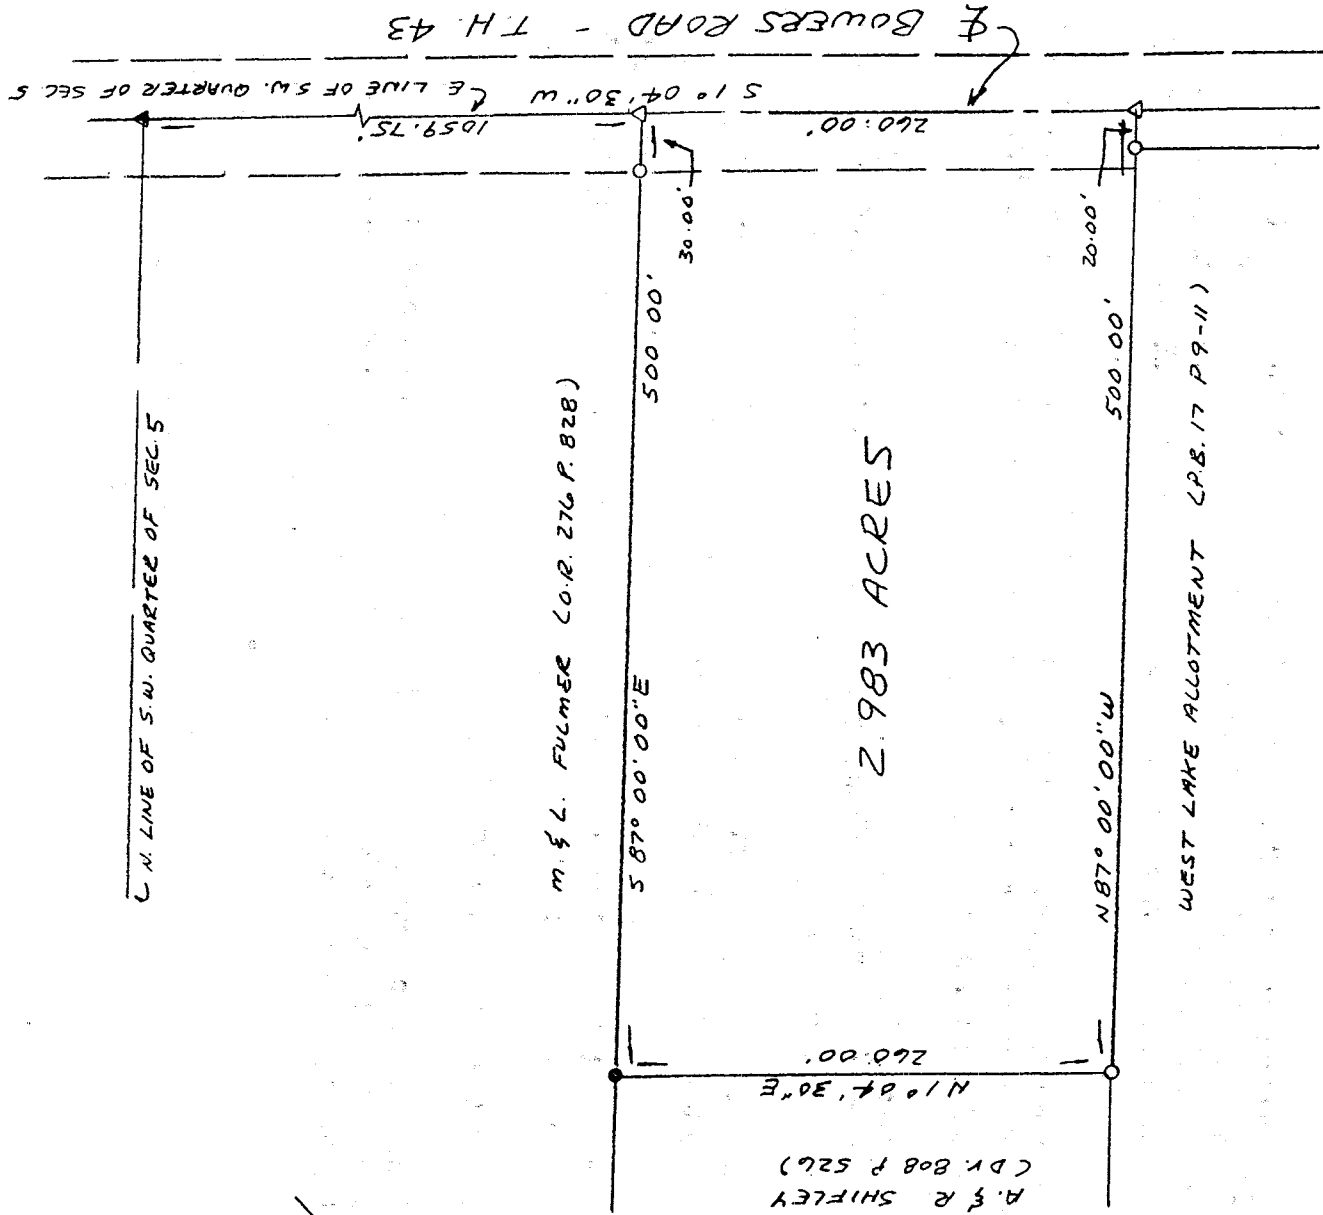 ℄ BOWERS ROAD - T.H. 43
S 1° 04' 30" W
E LINE OF S.W. QUARTER OF SEC 5
1059.75'
260.00'
30.00'
20.00'
N. LINE OF S.W. QUARTER OF SEC. 5
M. & L. FULMER (O.R. 276 P. 828)
500.00'
S 87° 00' 00" E
2.983 ACRES
500.00'
N 87° 00' 00" W
WEST LAKE ALLOTMENT (P.B. 17 P 9-11)
260.00'
N 1° 04' 30" E
A. & R SHIFLEY
(DV. 808 P 526)